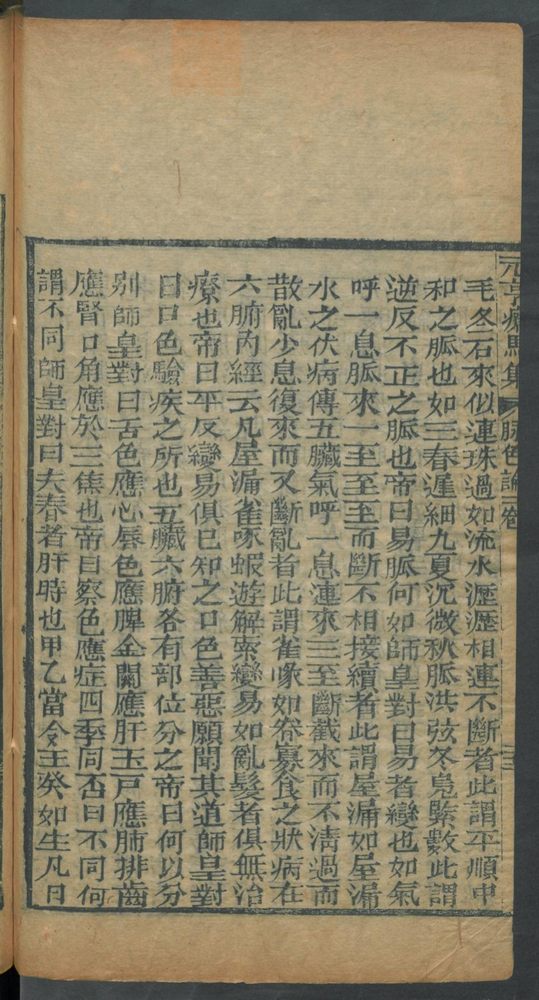 元亨療馬集 脉色論一卷
毛冬石來似連珠過如流水瀝瀝相連不斷者此謂平順中
和之脈也如三春遲細九夏沉微秋脈洪弦冬見緊數此謂
逆反不正之脈也帝曰易脈何如師皇對曰易者變也如氣
呼一息脈來一至至至而斷不相接續者此謂屋漏如屋漏
水之伏病傳五臟氣呼一息連來三至斷截來而不清過而
散亂少息復來而又斷亂者此謂雀啄如眷寡食之狀病在
六腑內經云凡屋漏雀啄蝦遊解索變易如亂髮者俱無治
療也帝曰平反變易俱已知之口色善惡願聞其道師皇對
曰口色驗疾之所也五臟六腑各有部位分之帝曰何以分
別師皇對曰舌色應心唇色應脾金關應肝玉戶應肺排齒
應腎口角應於三焦也帝曰察色應症四季同否曰不同何
謂不同師皇對曰夫春者肝時也甲乙當令壬癸如生凡日